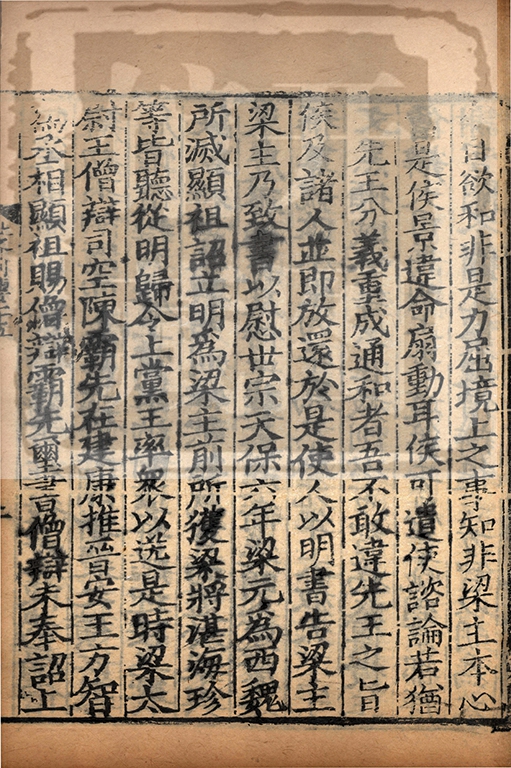 日欲和非是力屈境上之事知非梁主本心
是侯景違命扇動耳侯可遣使諮論若猶
先王分義重成通和者吾不敢違先王之旨
侯及諸人並即放還於是使人以明書告梁主
梁主乃致書以慰世宗天保六年梁元為西魏
所滅顯祖詔立明為梁主前所獲梁將湛海珍
等皆聽從明歸令上黨王率衆以送是時梁太
尉王僧辯司空陳霸先在建康推晉安王方智
丞相顯祖賜僧辯霸先璽書僧辯未奉詔上